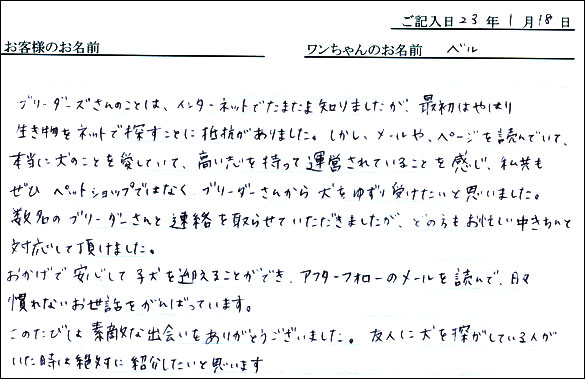 ご記入日 23 年 1 月 18 日
お客様のお名前
ワンちゃんのお名前 ベル
ブリーダーズさんのことは、インターネットでたまたま知りましたが、最初はやはり
生き物をネットで探すことに抵抗がありました。しかし、メールや、ページを読んでいて、
本当に犬のことを愛していて、高い志を持って運営されていることを感じ、私共も
ぜひペットショップではなく、ブリーダーさんから犬をゆずり受けたいと思いました。
数名のブリーダーさんと連絡を取らせていただきましたが、どの方もお忙しい中きちんと
対応して頂けました。
おかげで安心して子犬を迎えることができ、アフターフォローのメールを読んで、日々
慣れないお世話をがんばっています。
このたびは素敵な出会いをありがとうございました。友人に犬を探がしている人が
いた時は絶対に紹介したいと思います